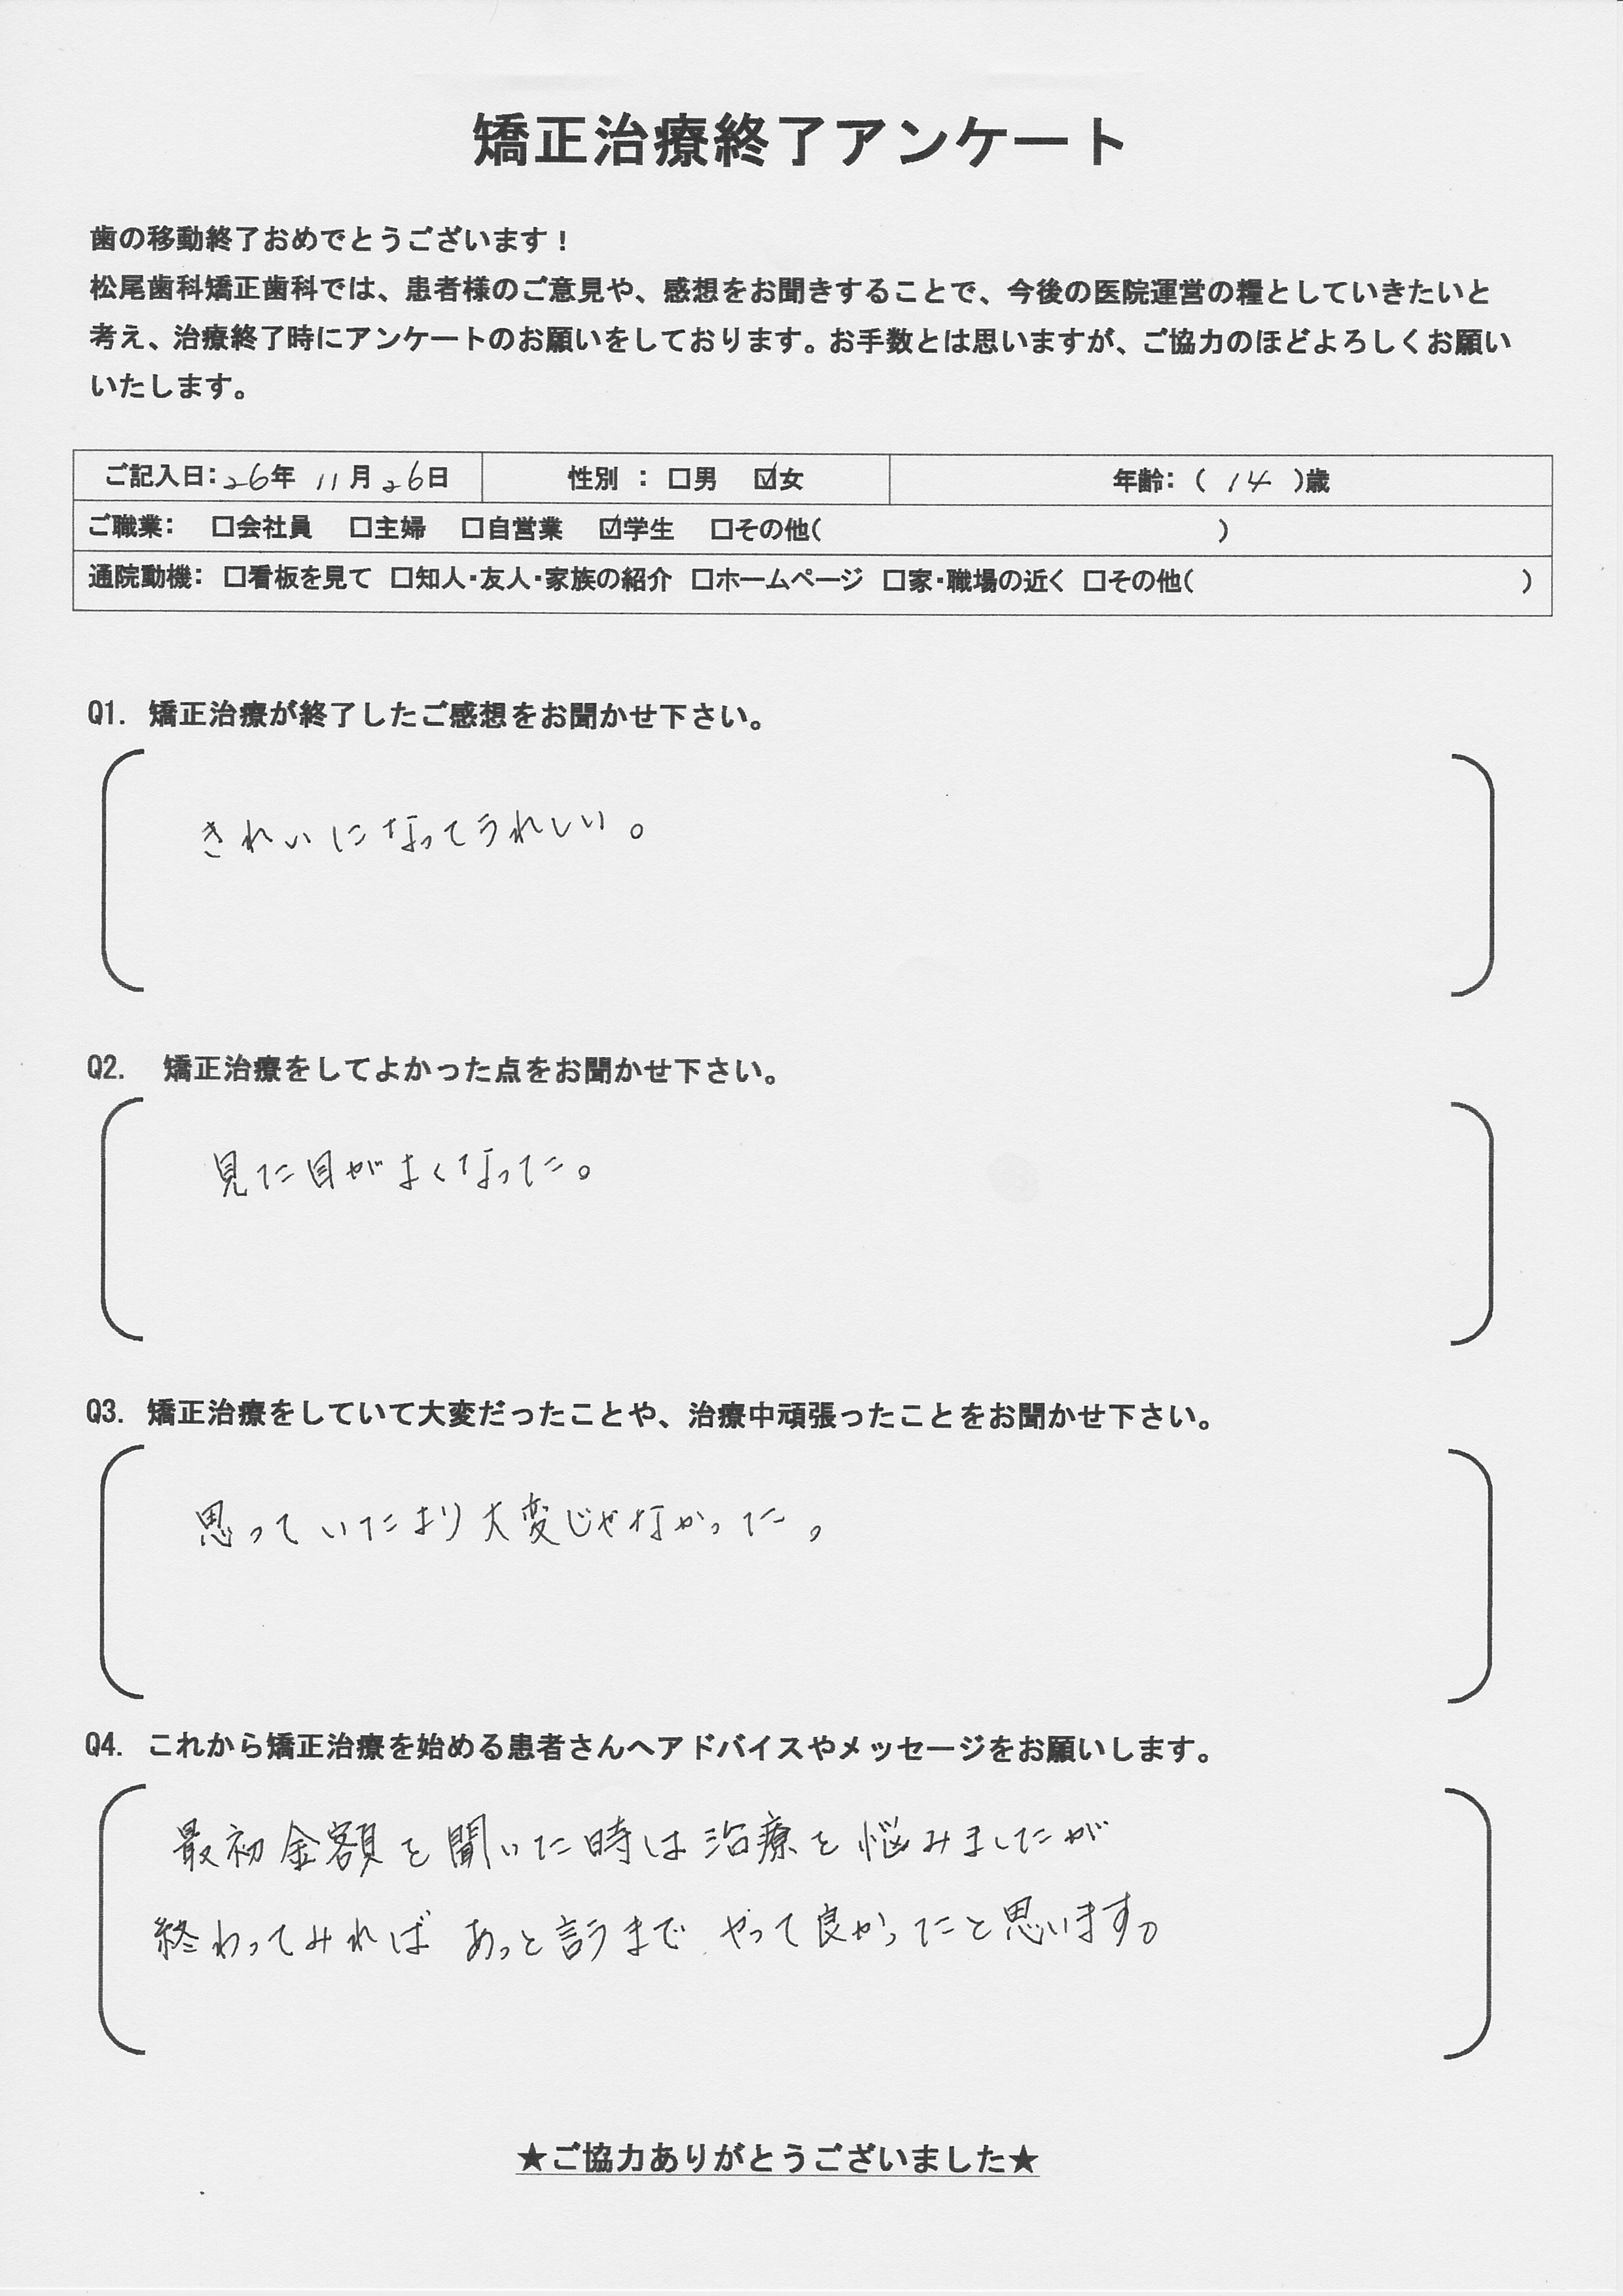 矯正治療終了アンケート
歯の移動終了おめでとうございます！
松尾歯科矯正歯科では、患者様のご意見や、感想をお聞きすることで、今後の医院運営の糧としていきたいと
考え、治療終了時にアンケートのお願いをしております。お手数とは思いますが、ご協力のほどよろしくお願い
いたします。
ご記入日：26年 11月26日 性別 ： □男 ☑女 年齢：（ 14 ）歳
ご職業： □会社員 □主婦 □自営業 ☑学生 □その他（ ）
通院動機： □看板を見て □知人・友人・家族の紹介 □ホームページ □家・職場の近く □その他（ ）
Q1. 矯正治療が終了したご感想をお聞かせ下さい。
きれいになってうれしい。
Q2. 矯正治療をしてよかった点をお聞かせ下さい。
見た目がよくなった。
Q3. 矯正治療をしていて大変だったことや、治療中頑張ったことをお聞かせ下さい。
思っていたより大変じゃなかった。
Q4. これから矯正治療を始める患者さんへアドバイスやメッセージをお願いします。
最初金額を聞いた時は治療を悩みましたが
終わってみれば あっと言うまで やって良かったと思います。
★ご協力ありがとうございました★